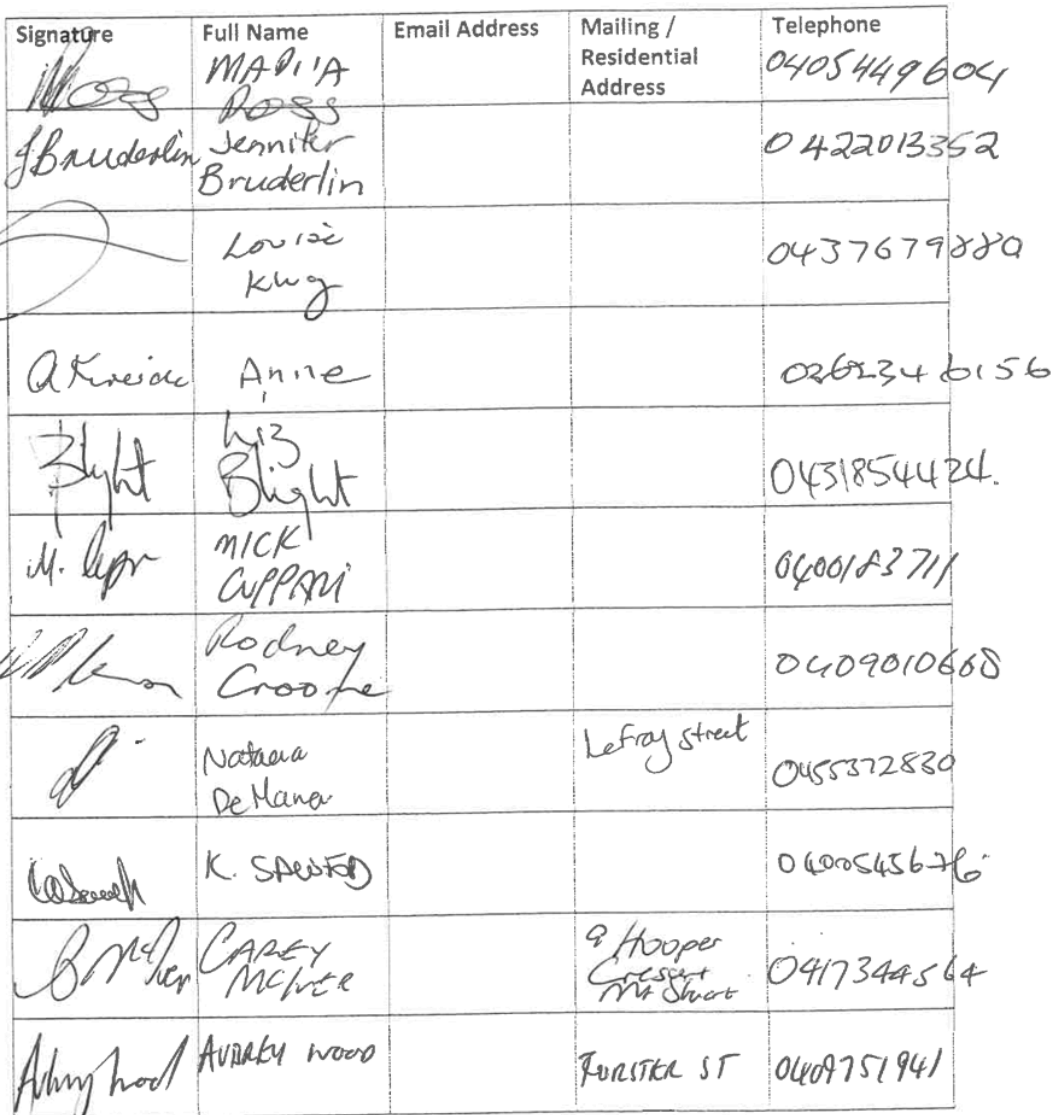 Signature Full Name Email Address Mailing / Residential Address Telephone
MARIA Ross 0405449604
JBruderlin Jennifer Bruderlin 0422013352
Louise King 0437679880
Anne 0262346156
Blight Liz Blight 0431854424.
MICK CUPPARI 0400183711
Rodney Croome 0409010668
De Lefroy Street 0455372830
K. 0400545676
CAREY MCIVER 9 Hooper Crescent Mt Stuart 0417344564
AUDREY WOOD FORSTER ST 0409751941